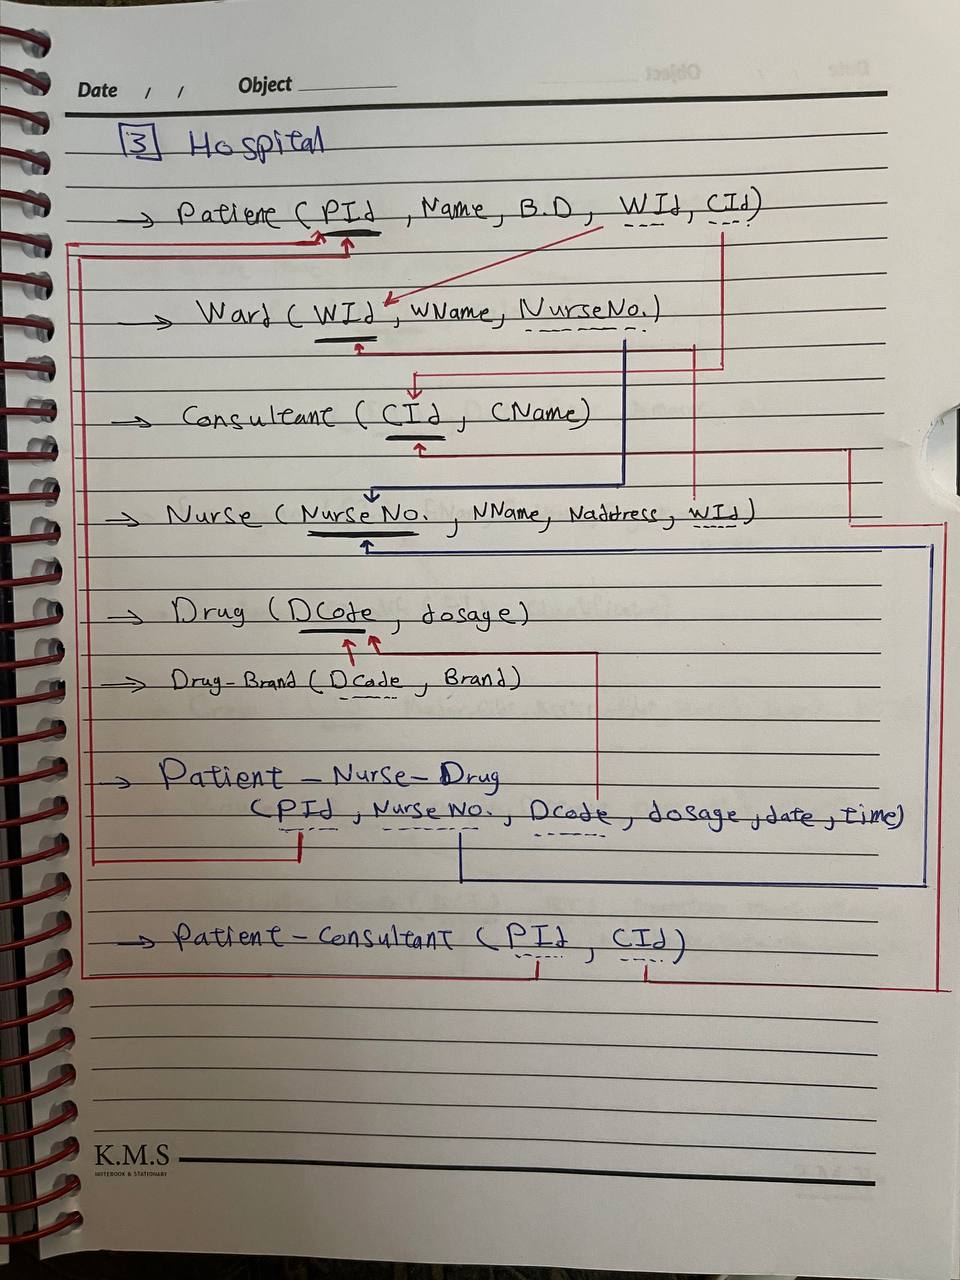 Date / / Object
3 Hospital
→ Patient (PId, Name, B.D, WId, CId)
→ Ward (WId, WName, NurseNo.)
→ Consultant (CId, CName)
→ Nurse (Nurse No., NName, Naddress, WId)
→ Drug (DCode, dosage)
→ Drug-Brand (DCode, Brand)
→ Patient - Nurse - Drug
(PId, Nurse NO., Dcode, dosage, date, time)
→ Patient - Consultant (PId, CId)
K.M.S
NOTEBOOK & STATIONARY